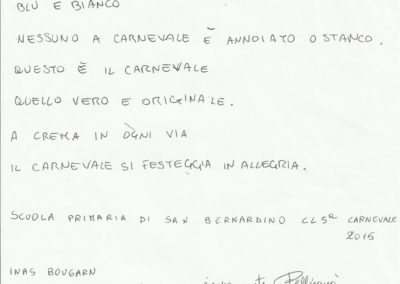 BLU E BIANCO
NESSUNO A CARNEVALE È ANNOIATO O STANCO.
QUESTO È IL CARNEVALE
QUELLO VERO E ORIGINALE.
A CREMA IN OGNI VIA
IL CARNEVALE SI FESTEGGIA IN ALLEGRIA.
SCUOLA PRIMARIA DI SAN BERNARDINO CL5ª CARNEVALE
2015
INAS BOUGARN